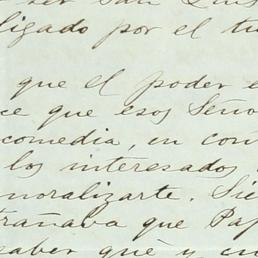 ser San Luis
ligado por el tu
que el poder e
ce que esos Seño
comedia, en con
los interesados
moralizarte. Sie
trañaba que Pap
saber que y cu